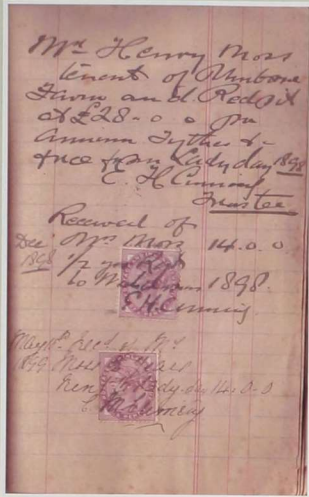 Mr Henry Moss
tenant of
Farm and Redpit
at £28-0 0 per
Annum Tythes &
free from Ladyday 1898
C. H. Cumming
Trustee
Received of
Dec Mrs Moss 14.0.0
1898 1/2 year Rent
to 1898.
C H Cumming
May Recd of Mr
1899 Moss year
Rent to Lady-day 14-0-0
C H Cumming